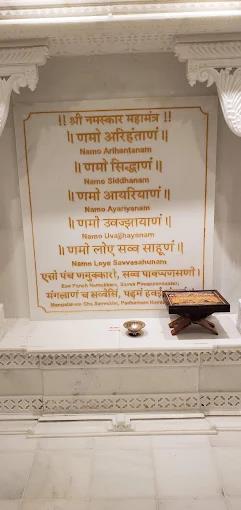 !! श्री नमस्कार महामंत्र !!
॥ णमो अरिहंताणं ॥
Namo Arihantanam
॥ णमो सिद्धाणं ॥
Namo Siddhanam
॥ णमो आयरियाणं ॥
Namo Ayariyanam
॥ णमो उवज्झायाणं ॥
Namo Uvajjhayanam
॥ णमो लोए सव्व साहूणं ॥
Namo Loye Savvasahunam
एसो पंच णमुक्कारो, सव्व पावप्पणासणो।
Eso Panch Namukkaro, Savva
मंगलाणं च सव्वेसिं, पढमं हवई
Mangalanam Cha Savvesim, Padhamam